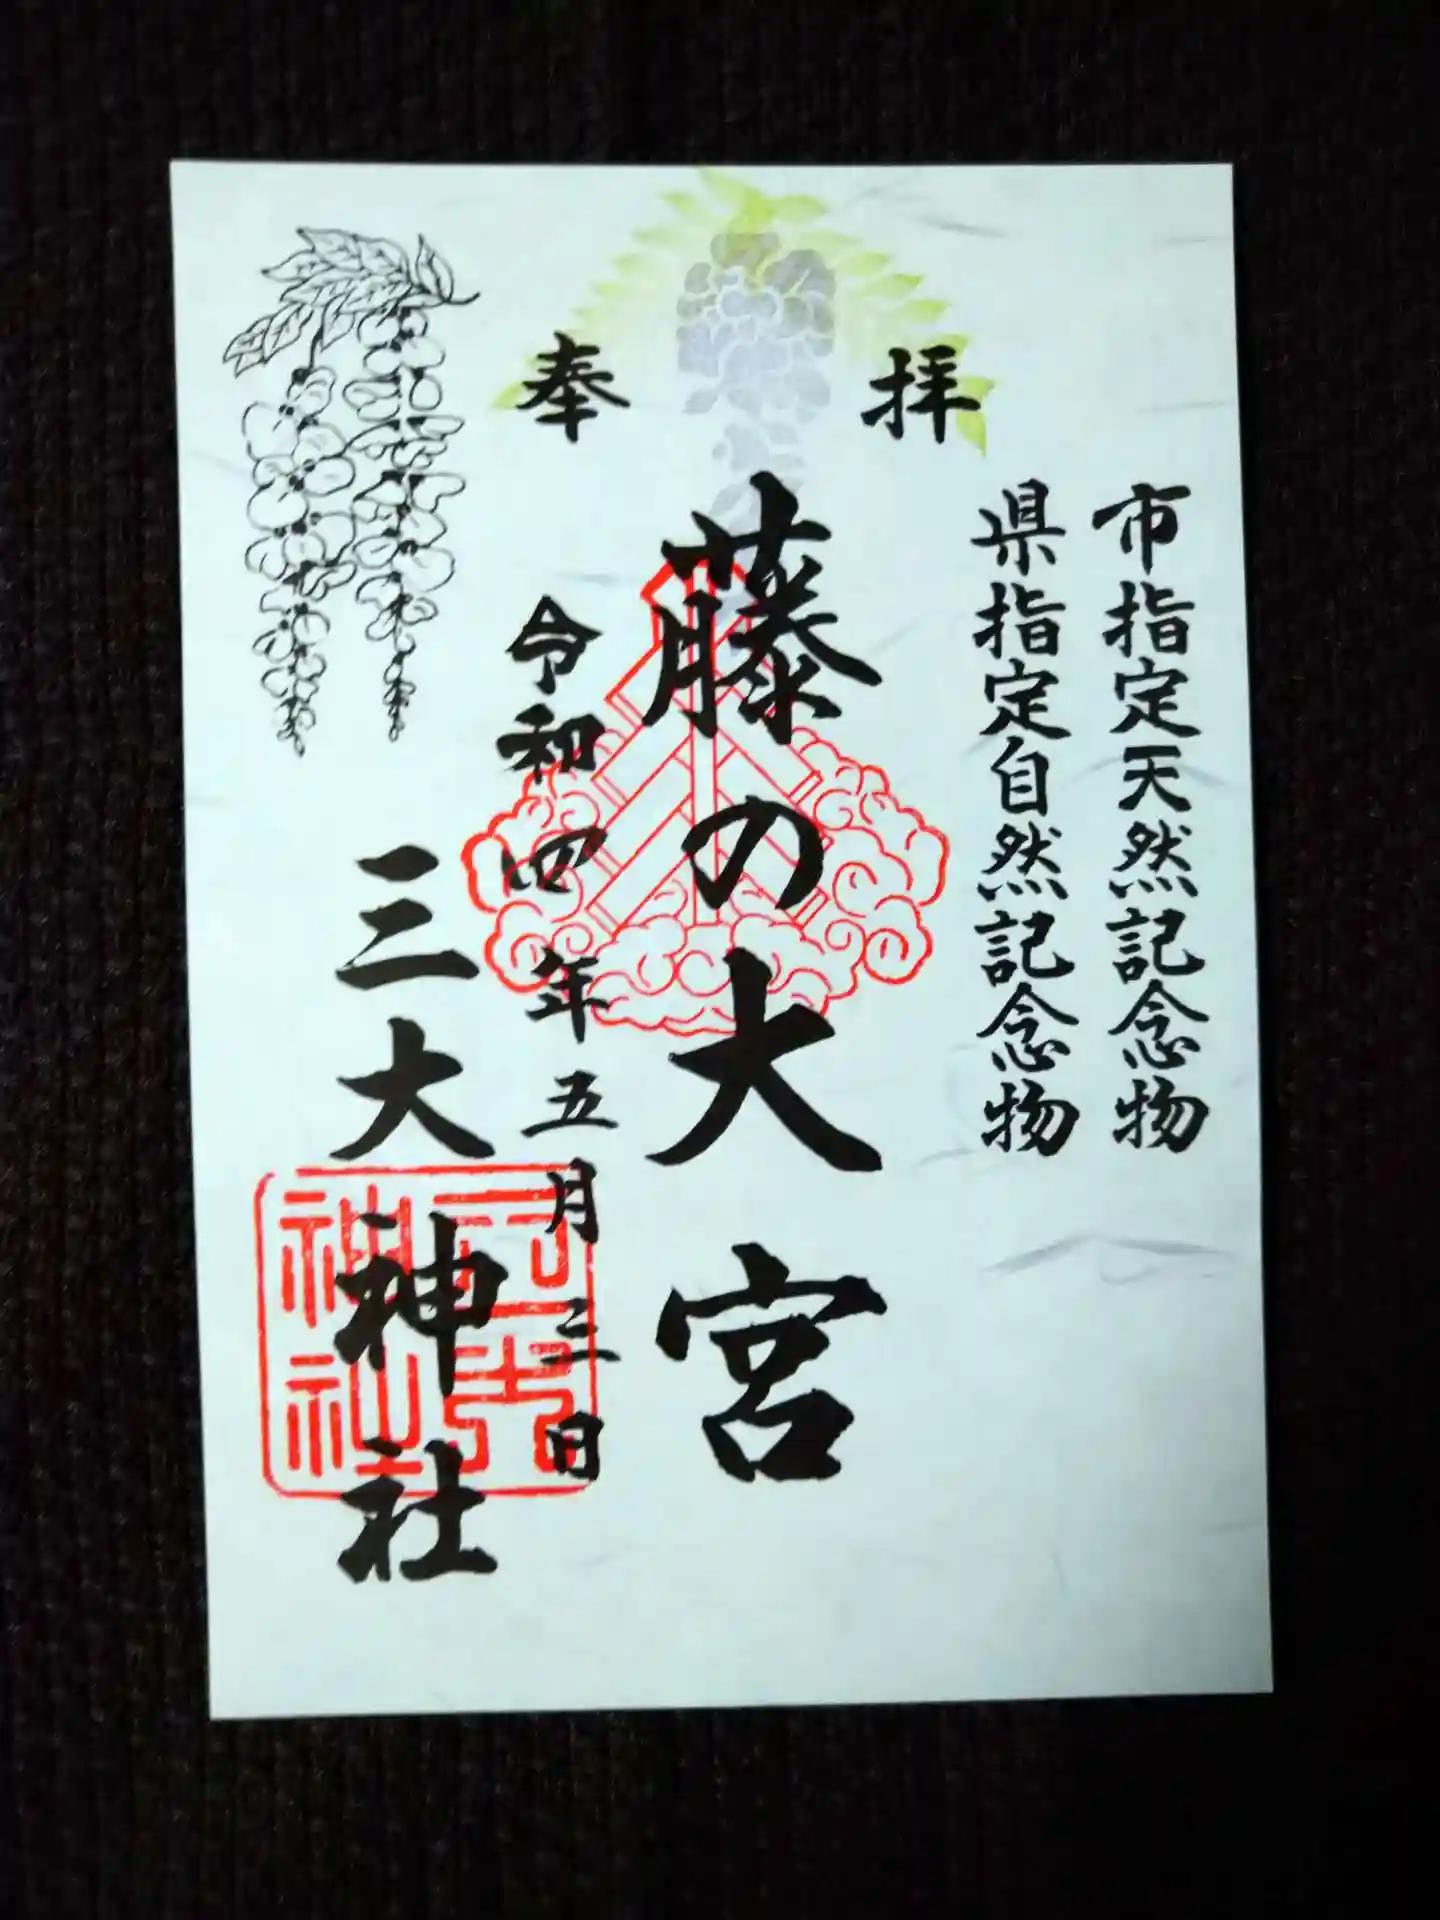 奉拝
市指定天然記念物
県指定自然記念物
藤の大宮
令和四年五月三日
三大神社